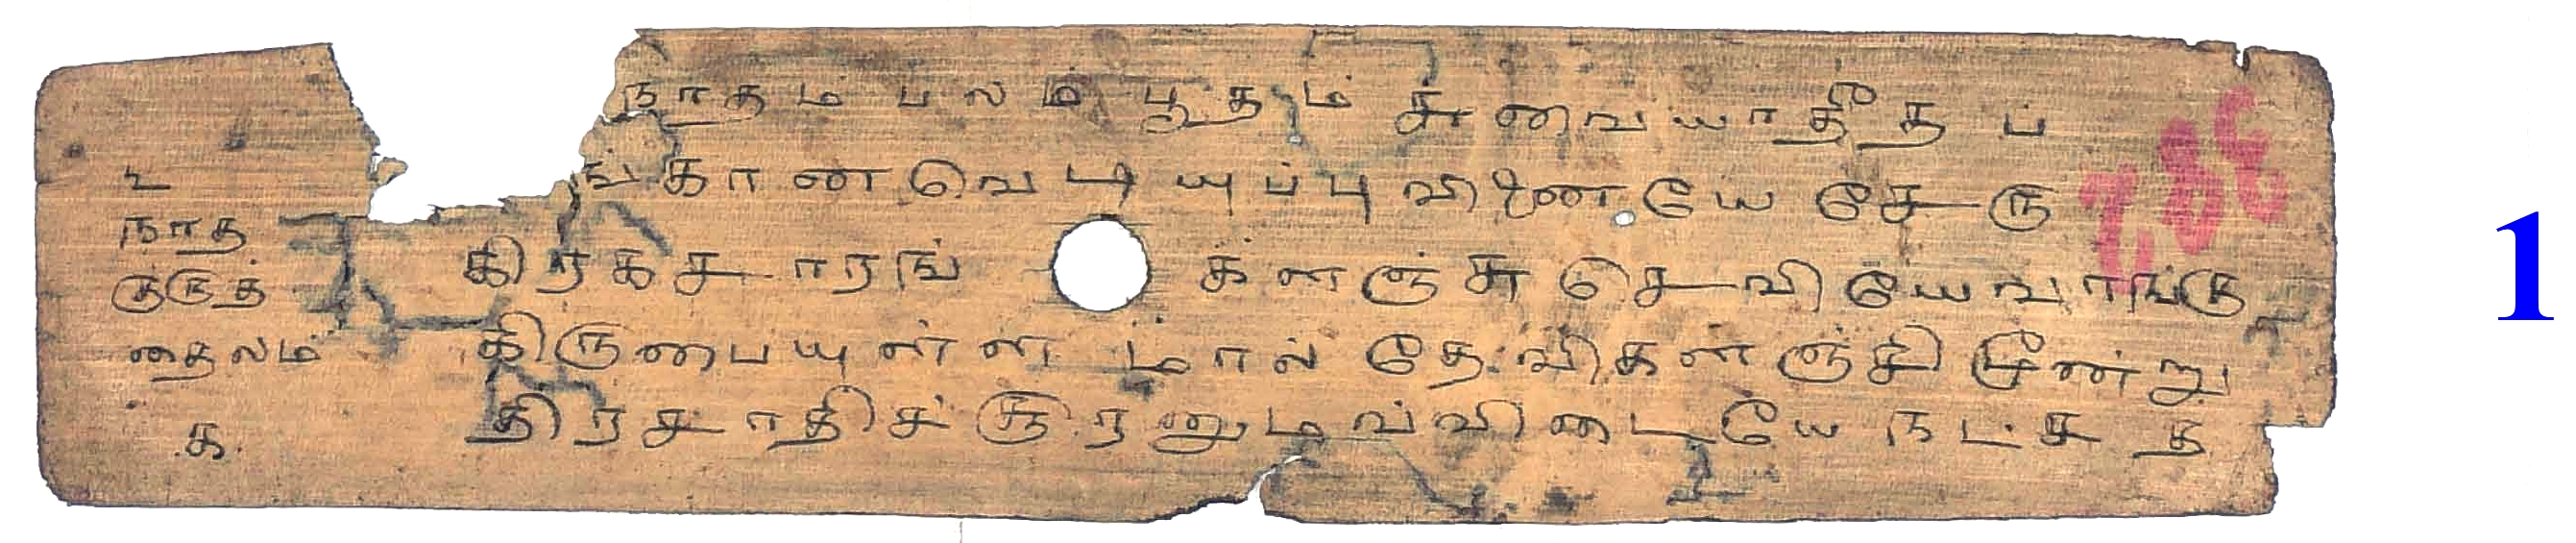 ௨
நாத
குருத்
தைலம்
க
நாதம் பலம் பூதம் சுவையாதீத ப்
ங்கான வெடியுப்பு வினையே சேரு
கிரகசாரங் களஞ்சு செவியேவாங்கு
கிருபையுள்ள மால் தேவிகளஞ்சி மூன்று
திரசாதிச் சூரனுமவ்விடையே நடசத்
1